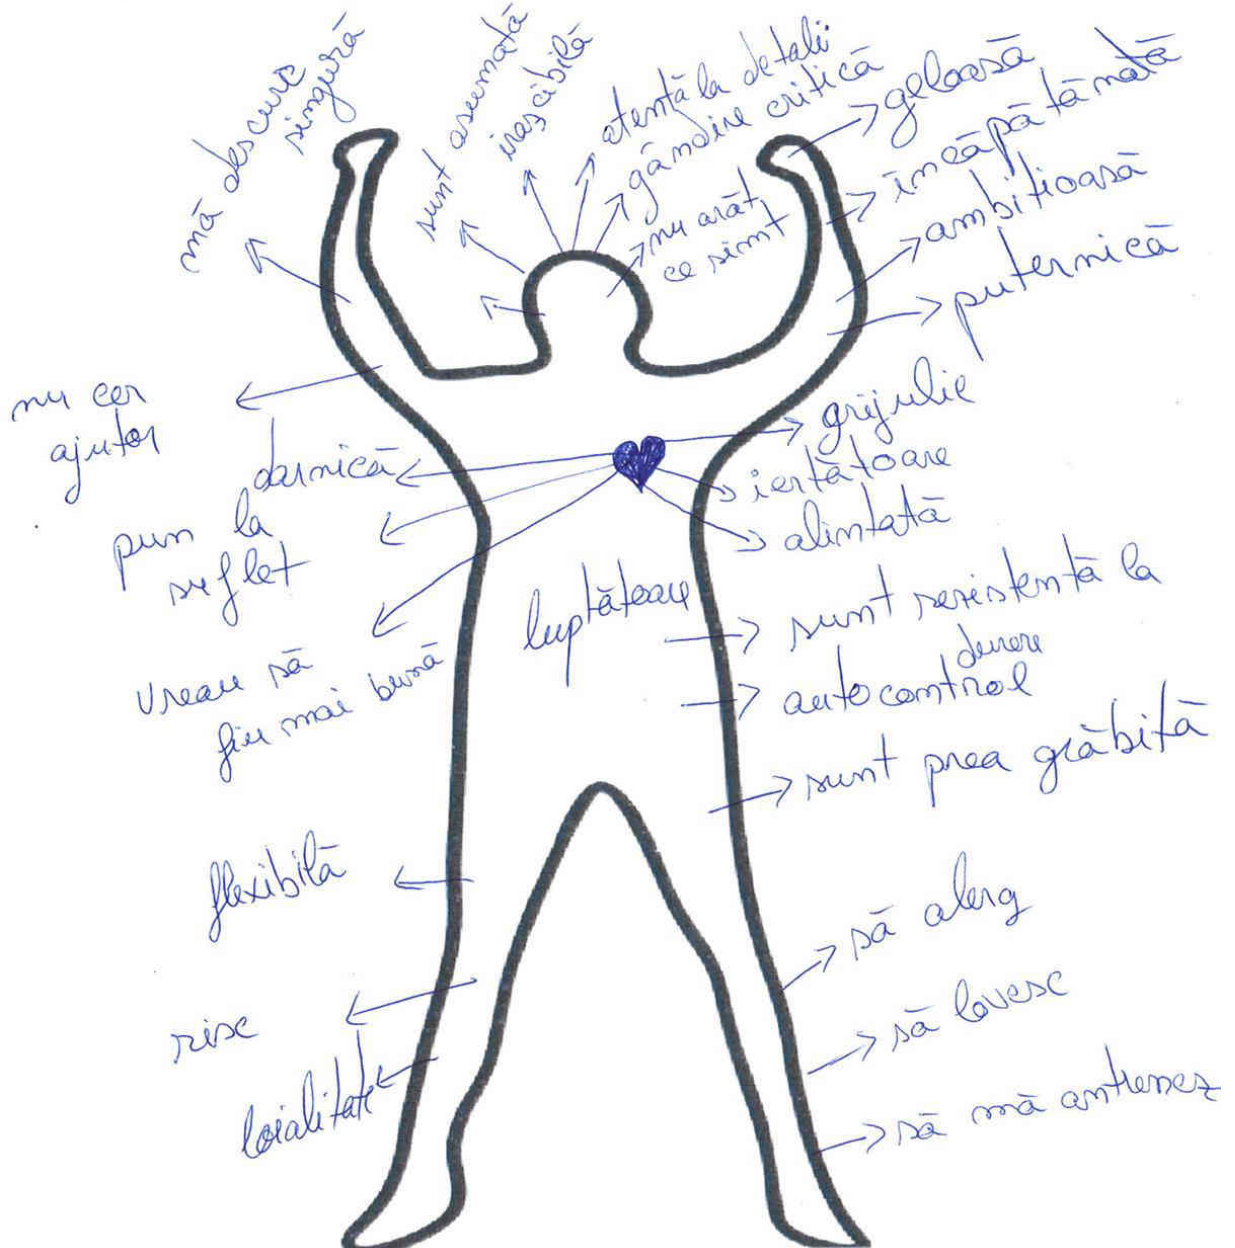 mă descurc
singură
sunt asumată
irascibilă
atentă la detalii
gândire critică
nu arăt
ce simt
geloasă
încăpățânată
ambițioasă
puternică
nu cer
ajutor
darnică
pun la
suflet
vreau să
fiu mai bună
grijulie
iertătoare
alintată
luptătoare
sunt rezistentă la
durere
autocontrol
sunt prea grăbită
flexibilă
risc
loialitate
să alerg
să lovesc
să mă antrenez